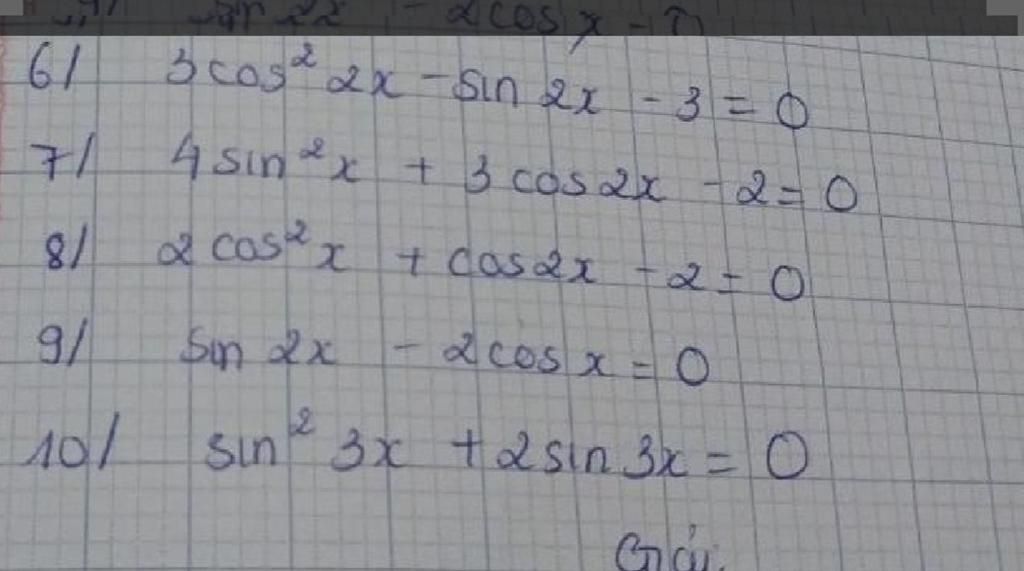 6/ 3cos² 2x - sin 2x - 3 = 0
7/ 4sin²x + 3cos2x - 2 = 0
8/ 2cos²x + cos2x - 2 = 0
9/ sin 2x - 2cosx = 0
10/ sin² 3x + 2sin 3x = 0